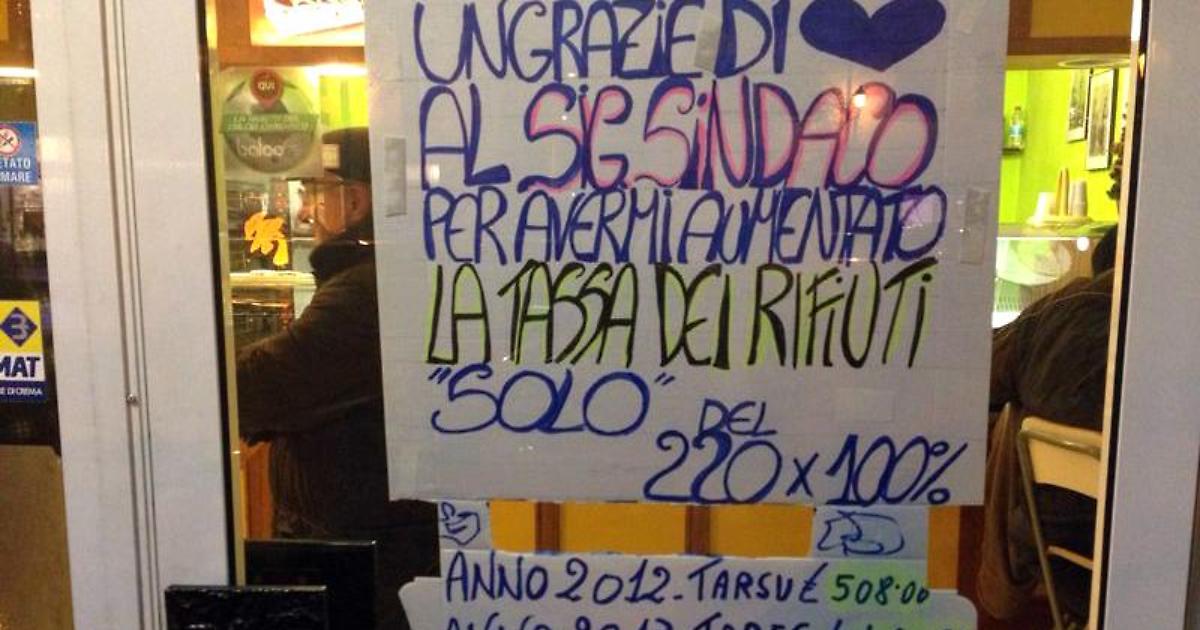 UN GRAZIE DI
AL SIG SINDACO
PER AVERMI AUMENTATO
LA TASSA DEI RIFIUTI
"SOLO" DEL
220 x 100%
ANNO 2012 - TARSU € 508.00
QUI
baloo
ETATO
MARE
3
MAT
E DI CREMA